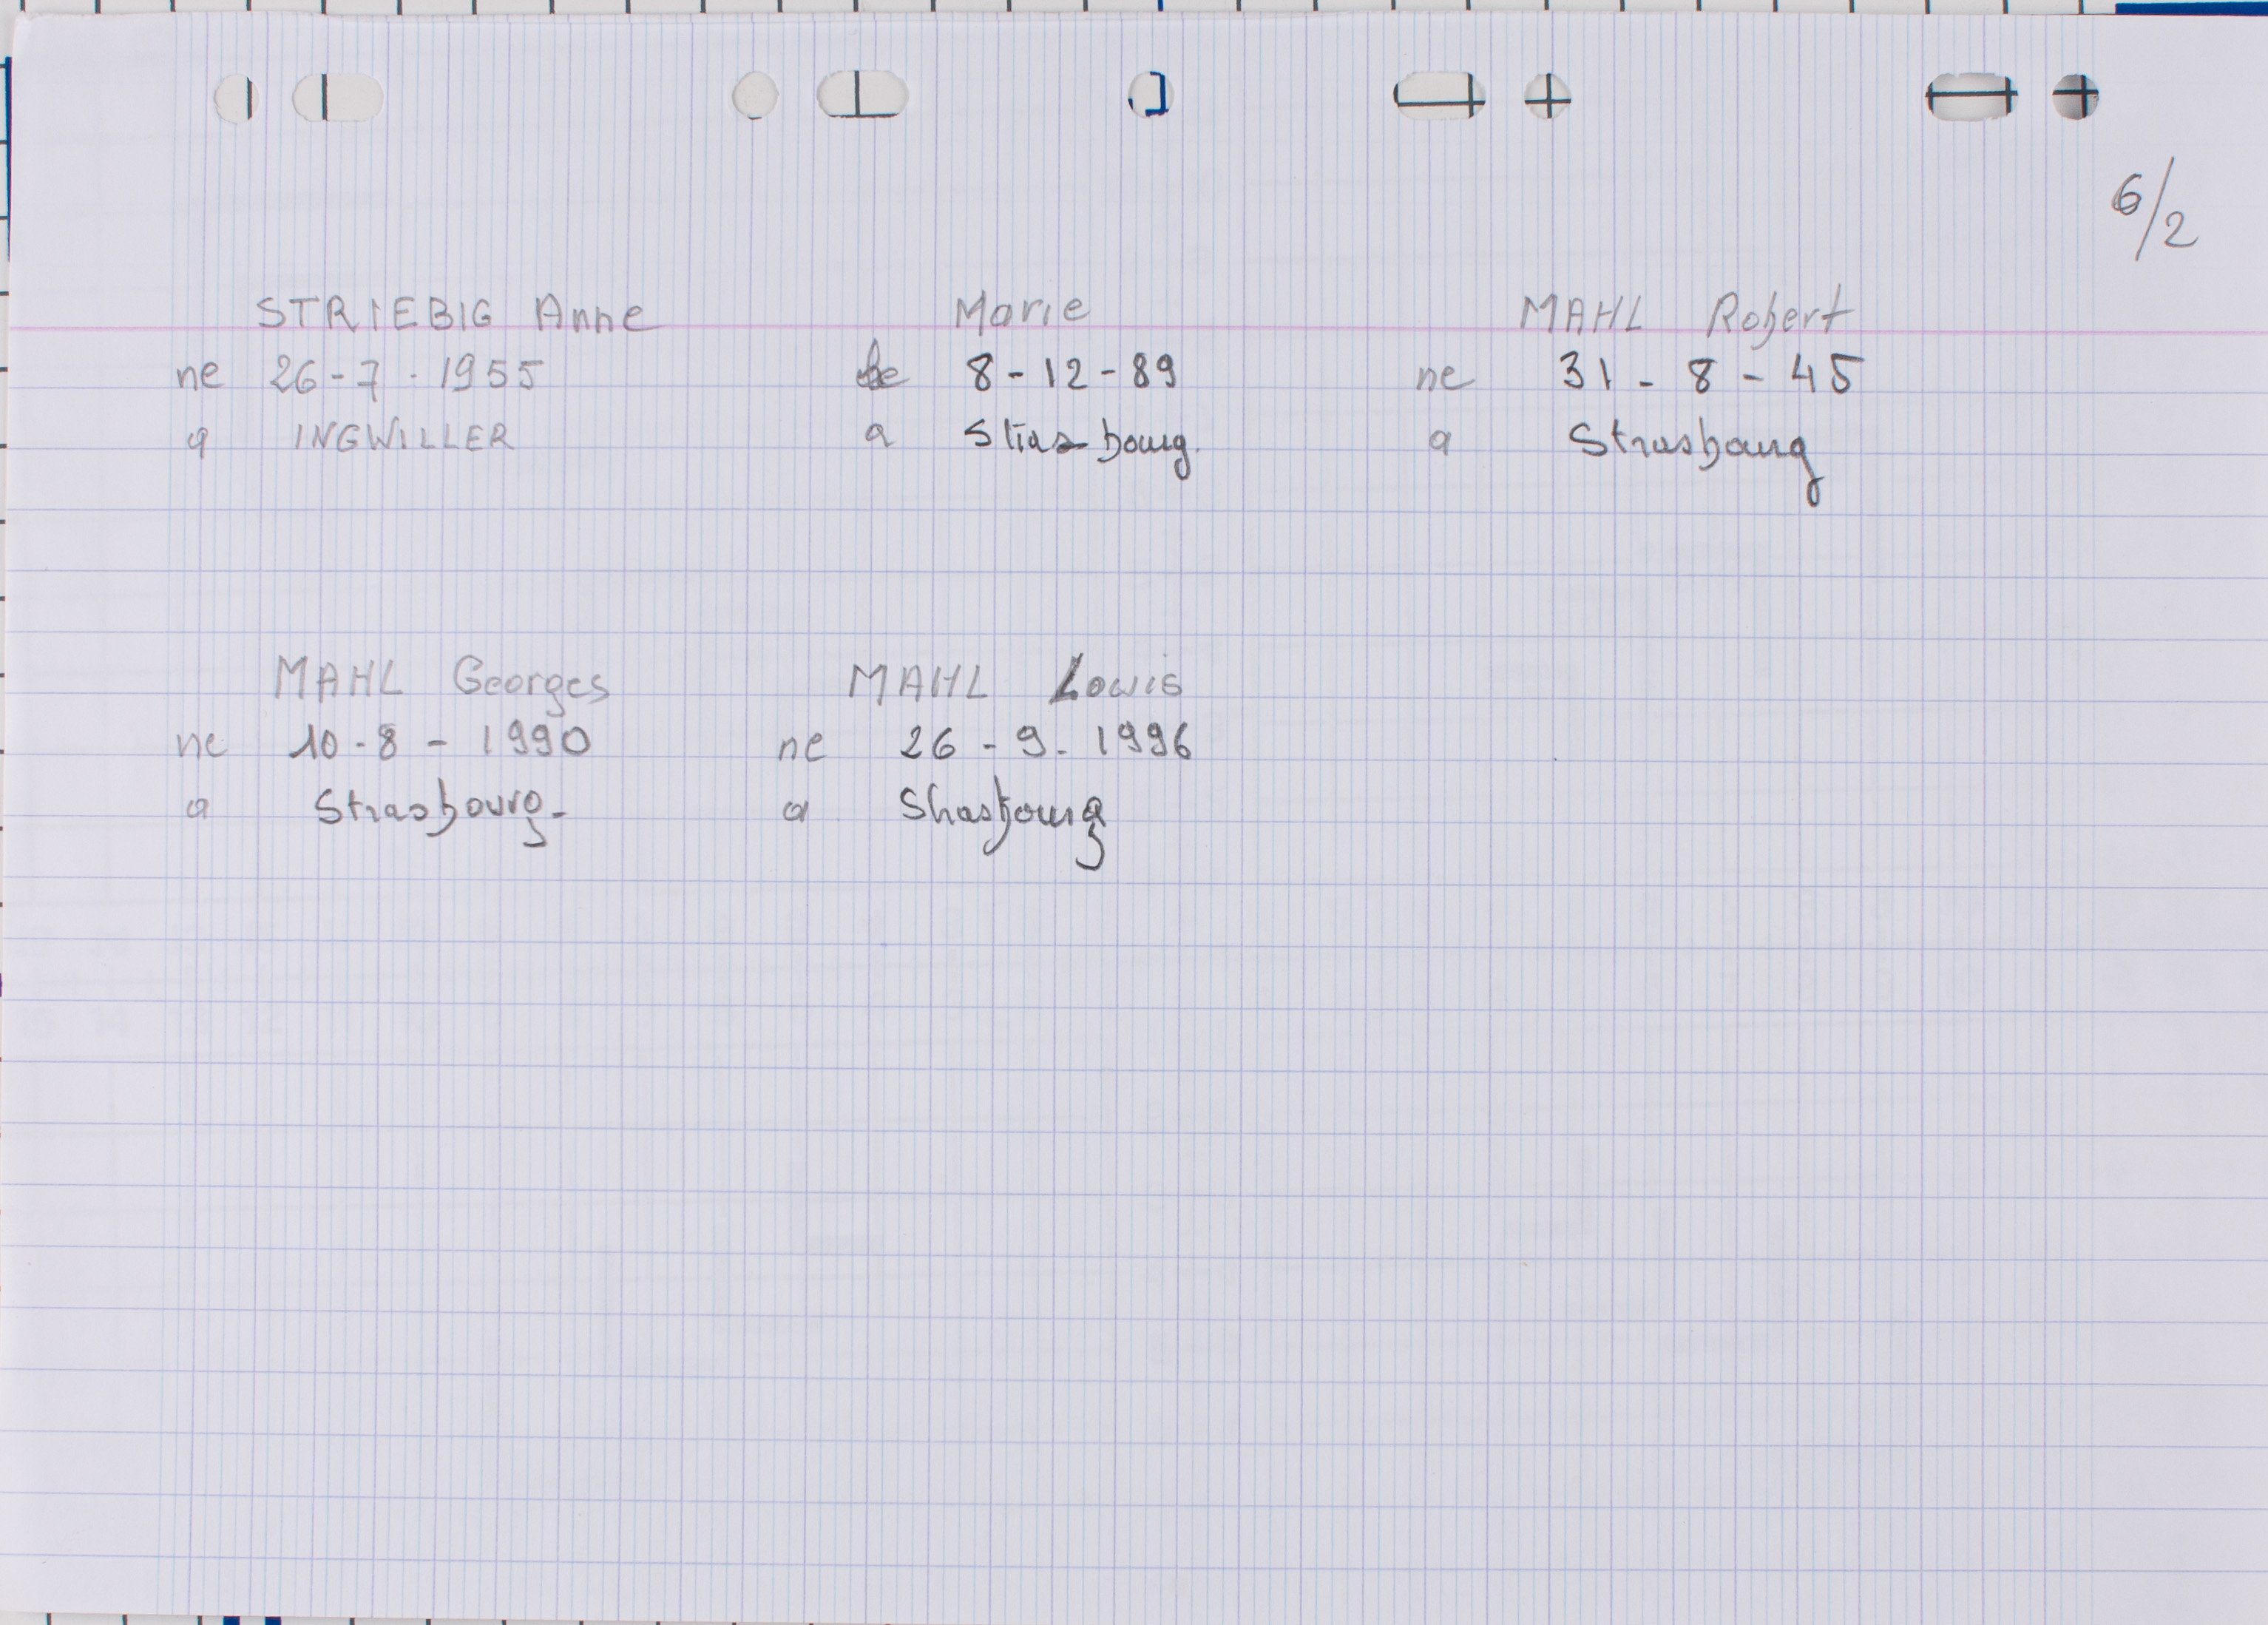 6/2
STRIEBIG Anne Marie MAHL Robert
ne 26-7-1955 le 8-12-89 ne 31-8-45
a INGWILLER a Strasbourg a Strasbourg
MAHL Georges MAHL Louis
ne 10-8-1990 ne 26-9-1996
a Strasbourg a Strasbourg